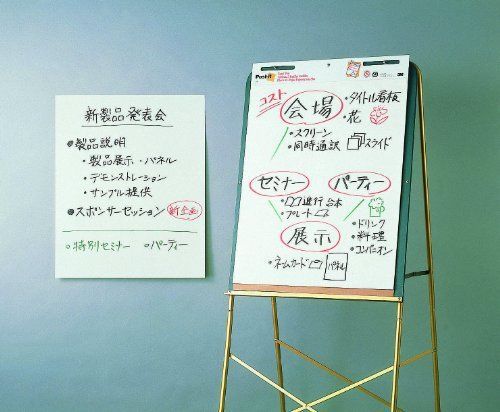 新製品発表会
●製品説明
・製品展示・パネル
・デモンストレーション
・サンプル提供
●スポンサーセッション 新企画
・特別セミナー ・パーティー
Post-it
コスト
会場
・タイトル看板
・花
・スクリーン
・同時通訳
スライド
セミナー
パーティ
・進行台本
・プレート
・ドリンク
・料理
・コンパニオン
展示
・ネームカード
パネル